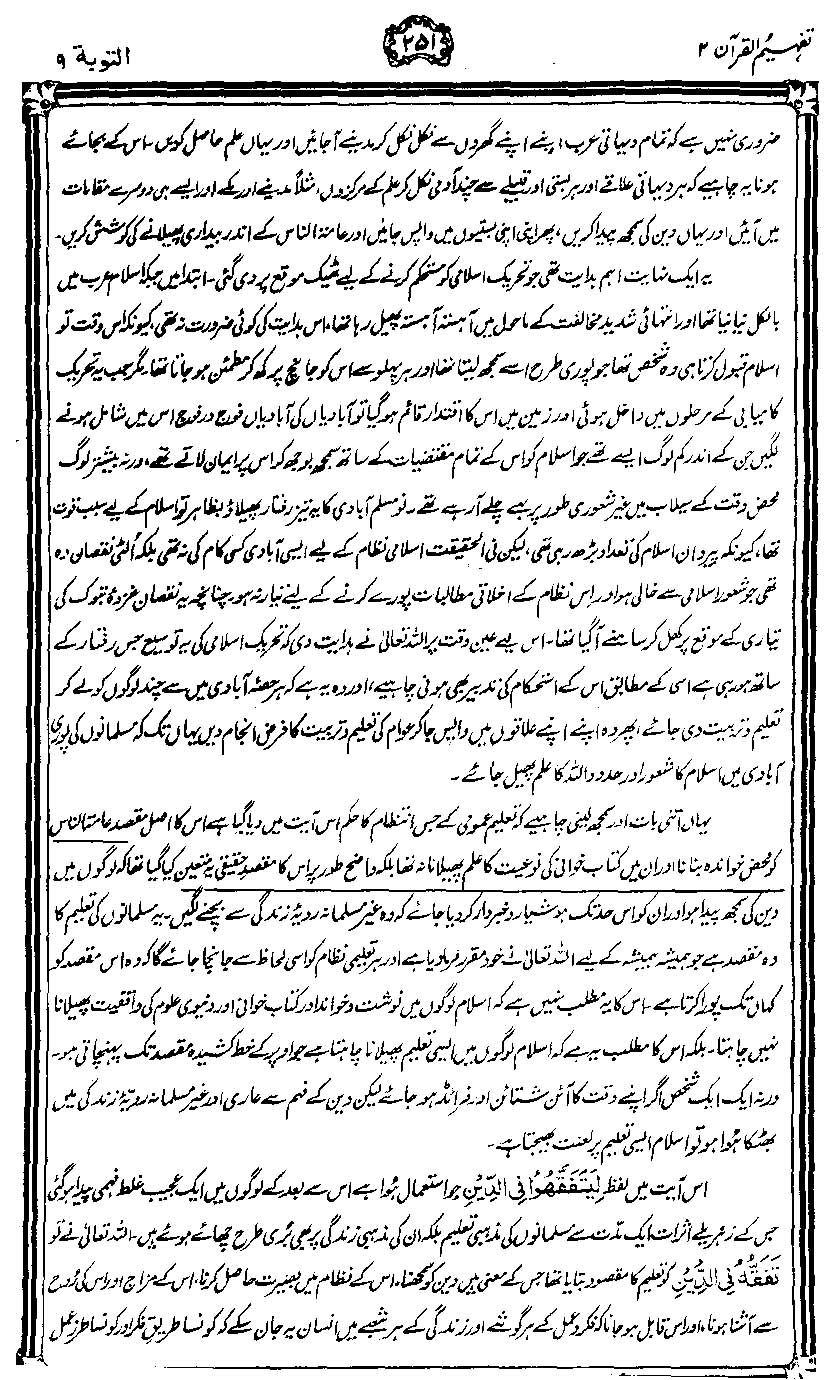 تفہیم القرآن ۲
۲۵۱
التوبة ۹
ضروری نہیں ہے کہ تمام دیہاتی عرب اپنے اپنے گھروں سے نکل نکل کر مدینے آجائیں اور یہاں علم حاصل کریں۔ اس کے بجائے
ہونا یہ چاہیے کہ ہر دیہاتی علاقے اور ہر بستی اور قبیلے سے چند آدمی نکل کر علم کے مرکزوں، مثلاً مدینے اور مکے اور ایسے ہی دوسرے مقامات
میں آئیں اور یہاں دین کی سمجھ پیدا کریں، پھر اپنی اپنی بستیوں میں واپس جائیں اور عامۃ الناس کے اندر بیداری پھیلانے کی کوشش کریں۔
یہ ایک نہایت اہم ہدایت تھی جو تحریک اسلامی کو مستحکم کرنے کے لیے ٹھیک موقع پر دی گئی۔ ابتدا میں جبکہ اسلام عرب میں
بالکل نیا نیا تھا اور انتہائی شدید مخالفت کے ماحول میں آہستہ آہستہ پھیل رہا تھا، اس ہدایت کی کوئی ضرورت نہ تھی، کیونکہ اس وقت تو
اسلام قبول کرتا ہی وہ شخص تھا جو پوری طرح اسے سمجھ لیتا تھا اور ہر پہلو سے اس کو جانچ پرکھ کر مطمئن ہو جاتا تھا۔ مگر جب یہ تحریک
کامیابی کے مرحلوں میں داخل ہوئی اور زمین میں اس کا اقتدار قائم ہو گیا تو آبادیاں کی آبادیاں فوج در فوج اس میں شامل ہونے
لگیں جن کے اندر کم لوگ ایسے تھے جو اسلام کو اس کے تمام مقتضیات کے ساتھ سمجھ بوجھ کر اس پر ایمان لاتے تھے، ورنہ بیشتر لوگ
محض وقت کے سیلاب میں غیر شعوری طور پر بہے چلے آ رہے تھے۔ نو مسلم آبادی کا یہ تیز رفتار پھیلاؤ بظاہر تو اسلام کے لیے سبب قوت
تھا، کیونکہ پیروان اسلام کی تعداد بڑھ رہی تھی، لیکن فی الحقیقت اسلامی نظام کے لیے ایسی آبادی کسی کام کی نہ تھی بلکہ اُلٹی نقصان دہ
تھی جو شعور اسلامی سے خالی ہو اور اس نظام کے اخلاقی مطالبات پورے کرنے کے لیے تیار نہ ہو۔ چنانچہ یہ نقصان غزوۂ تبوک کی
تیاری کے موقع پر کھل کر سامنے آ گیا تھا۔ اس لیے عین وقت پر اللہ تعالیٰ نے ہدایت دی کہ تحریک اسلامی کی یہ توسیع جس رفتار کے
ساتھ ہو رہی ہے اسی کے مطابق اس کے استحکام کی تدبیر بھی ہونی چاہیے، اور وہ یہ ہے کہ ہر حصۂ آبادی میں سے چند لوگوں کو لے کر
تعلیم و تربیت دی جائے، پھر وہ اپنے اپنے علاقوں میں واپس جا کر عوام کی تعلیم و تربیت کا فرض انجام دیں یہاں تک کہ مسلمانوں کی پوری
آبادی میں اسلام کا شعور اور حدود اللہ کا علم پھیل جائے۔
یہاں اتنی بات اور سمجھ لینی چاہیے کہ تعلیم عمومی کے جس انتظام کا حکم اس آیت میں دیا گیا ہے اس کا اصل مقصد عامۃ الناس
کو محض خواندہ بنانا اور ان میں کتاب خوانی کی نوعیت کا علم پھیلانا نہ تھا بلکہ واضح طور پر اس کا مقصد حقیقی یہ متعین کیا گیا تھا کہ لوگوں میں
دین کی سمجھ پیدا ہو اور ان کو اس حد تک ہوشیار و خبردار کر دیا جائے کہ وہ غیر مسلمانہ رویۂ زندگی سے بچنے لگیں۔ یہ مسلمانوں کی تعلیم کا
وہ مقصد ہے جو ہمیشہ ہمیشہ کے لیے اللہ تعالیٰ نے خود مقرر فرما دیا ہے اور ہر تعلیمی نظام کو اسی لحاظ سے جانچا جائے گا کہ وہ اس مقصد کو
کہاں تک پورا کرتا ہے۔ اس کا یہ مطلب نہیں ہے کہ اسلام لوگوں میں نوشت و خواند اور کتاب خوانی اور دنیوی علوم کی واقفیت پھیلانا
نہیں چاہتا۔ بلکہ اس کا مطلب یہ ہے کہ اسلام لوگوں میں ایسی تعلیم پھیلانا چاہتا ہے جو اوپر کے خط کشیدہ مقصد تک پہنچاتی ہو۔
ورنہ ایک ایک شخص اگر اپنے وقت کا آئن شتائن اور فرائڈ ہو جائے لیکن دین کے فہم سے عاری اور غیر مسلمانہ رویۂ زندگی میں
بھٹکا ہُوا ہو تو اسلام ایسی تعلیم پر لعنت بھیجتا ہے۔
اس آیت میں لفظ لِیَتَفَقَّهُوْا فِی الدِّیْنِ جو استعمال ہُوا ہے اس سے بعد کے لوگوں میں ایک عجیب غلط فہمی پیدا ہو گئی
جس کے زہریلے اثرات ایک مدت سے مسلمانوں کی مذہبی تعلیم بلکہ ان کی مذہبی زندگی پر بھی بُری طرح چھائے ہوئے ہیں۔ اللہ تعالیٰ نے تو
تَفَقُّہ فِی الدِّیْن کو تعلیم کا مقصود بتایا تھا جس کے معنی ہیں دین کو سمجھنا، اس کے نظام میں بصیرت حاصل کرنا، اس کے مزاج اور اس کی رُوح
سے آشنا ہونا، اور اس قابل ہو جانا کہ فکر و عمل کے ہر گوشے اور زندگی کے ہر شعبے میں انسان یہ جان سکے کہ کونسا طریق فکر اور کونسا طرز عمل